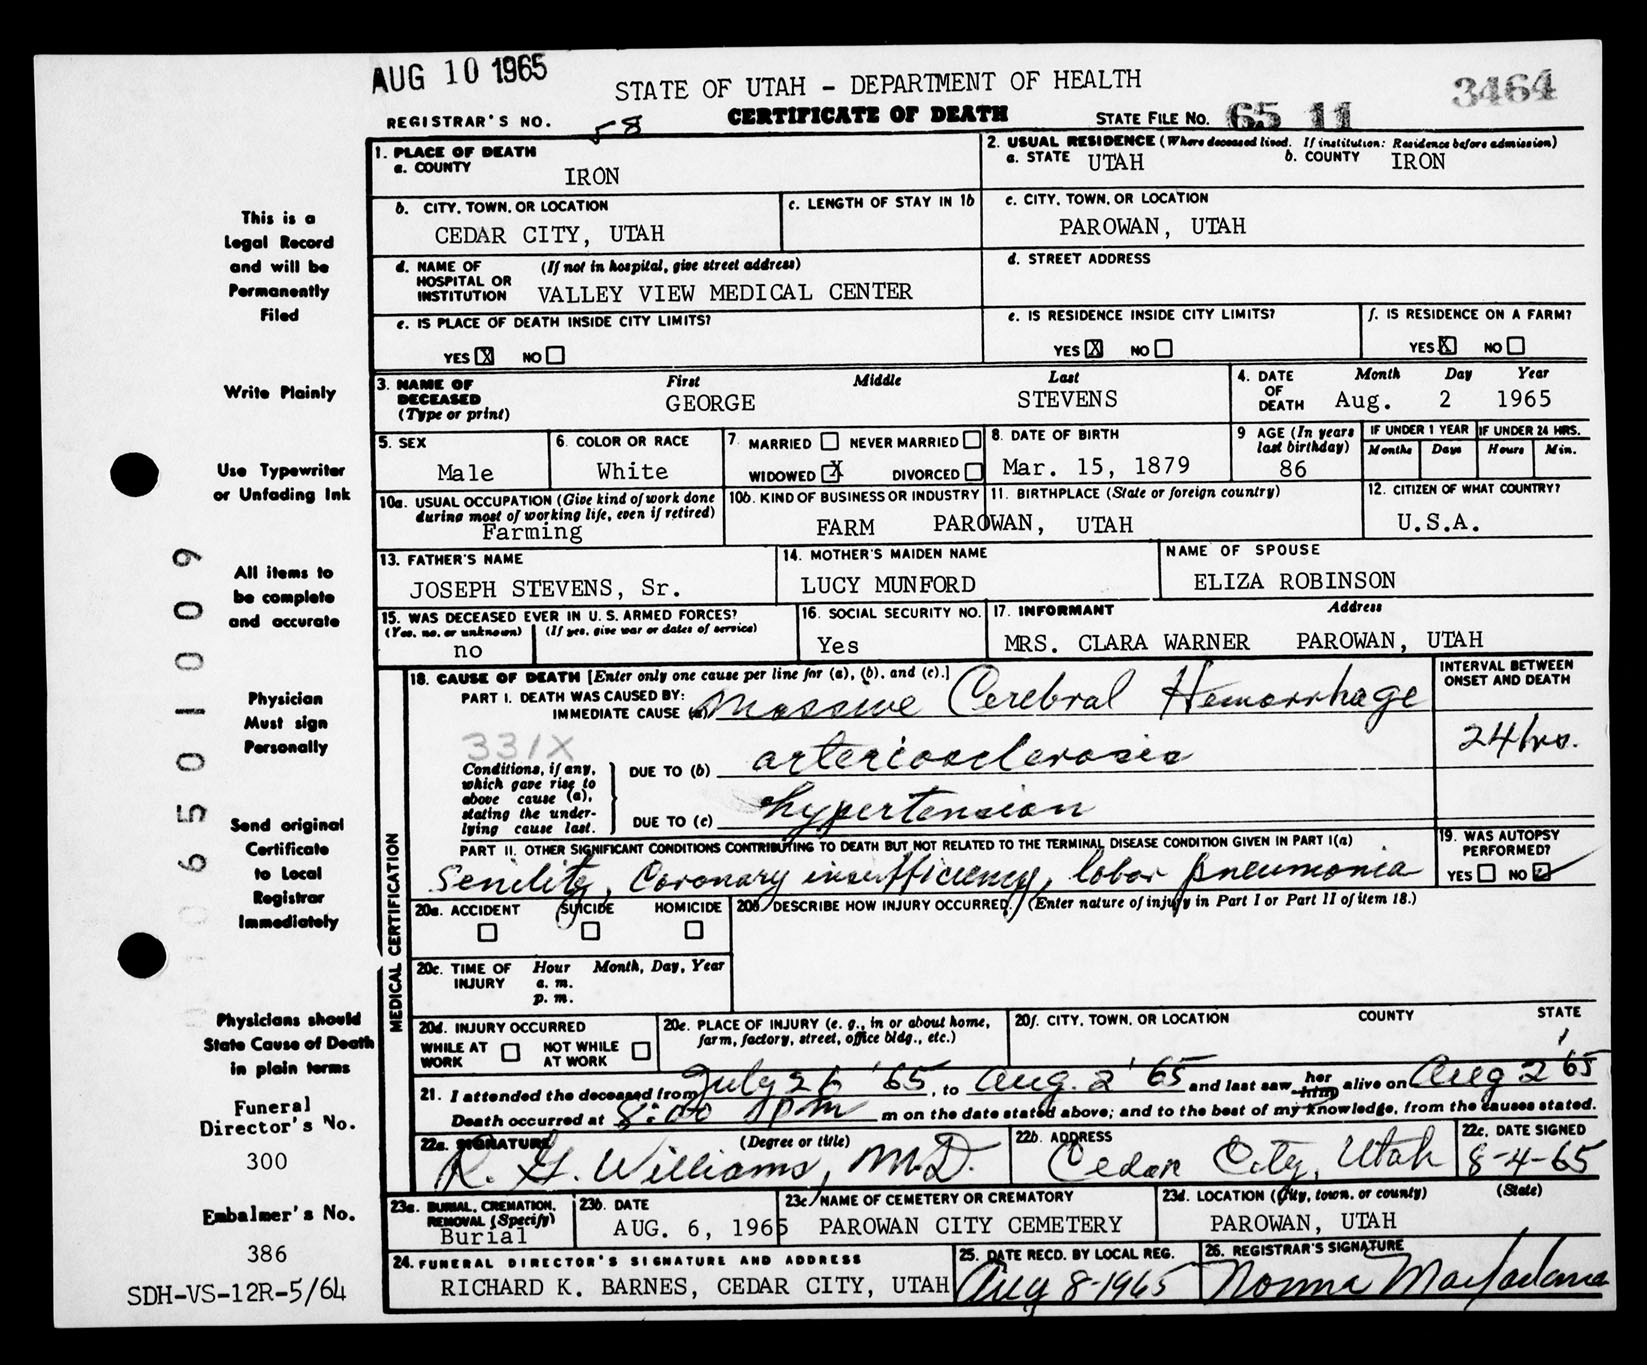 AUG 10 1965
STATE OF UTAH – DEPARTMENT OF HEALTH
3464
REGISTRAR'S NO. 58
CERTIFICATE OF DEATH
STATE FILE NO. 65 11
1. PLACE OF DEATH
a. COUNTY
IRON
2. USUAL RESIDENCE (Where deceased lived. If institution: Residence before admission)
a. STATE UTAH b. COUNTY IRON
b. CITY, TOWN, OR LOCATION
CEDAR CITY, UTAH
c. LENGTH OF STAY IN 1b
c. CITY, TOWN, OR LOCATION
PAROWAN, UTAH
d. NAME OF HOSPITAL OR INSTITUTION (If not in hospital, give street address)
VALLEY VIEW MEDICAL CENTER
d. STREET ADDRESS
e. IS PLACE OF DEATH INSIDE CITY LIMITS?
YES X NO
e. IS RESIDENCE INSIDE CITY LIMITS?
YES X NO
f. IS RESIDENCE ON A FARM?
YES X NO
3. NAME OF DECEASED (Type or print)
First Middle Last
GEORGE STEVENS
4. DATE OF DEATH
Month Day Year
Aug. 2 1965
5. SEX
Male
6. COLOR OR RACE
White
7. MARRIED NEVER MARRIED
WIDOWED X DIVORCED
8. DATE OF BIRTH
Mar. 15, 1879
9 AGE (In years last birthday)
86
IF UNDER 1 YEAR
Months Days
IF UNDER 24 HRS.
Hours Min.
10a. USUAL OCCUPATION (Give kind of work done during most of working life, even if retired)
Farming
10b. KIND OF BUSINESS OR INDUSTRY
FARM
11. BIRTHPLACE (State or foreign country)
PAROWAN, UTAH
12. CITIZEN OF WHAT COUNTRY?
U.S.A.
13. FATHER'S NAME
JOSEPH STEVENS, Sr.
14. MOTHER'S MAIDEN NAME
LUCY MUNFORD
NAME OF SPOUSE
ELIZA ROBINSON
15. WAS DECEASED EVER IN U. S. ARMED FORCES?
(Yes, no, or unknown) (If yes, give war or dates of service)
no
16. SOCIAL SECURITY NO.
Yes
17. INFORMANT Address
MRS. CLARA WARNER PAROWAN, UTAH
MEDICAL CERTIFICATION
18. CAUSE OF DEATH [Enter only one cause per line for (a), (b), and (c).]
PART I. DEATH WAS CAUSED BY:
IMMEDIATE CAUSE (a) Massive Cerebral Hemorrhage
331X
Conditions, if any, which gave rise to above cause (a), stating the underlying cause last.
DUE TO (b) arteriosclerosis
DUE TO (c) hypertension
INTERVAL BETWEEN ONSET AND DEATH
24 hrs.
PART II. OTHER SIGNIFICANT CONDITIONS CONTRIBUTING TO DEATH BUT NOT RELATED TO THE TERMINAL DISEASE CONDITION GIVEN IN PART I(a)
Senility, Coronary insufficiency, lobar pneumonia
19. WAS AUTOPSY PERFORMED?
YES NO
20a. ACCIDENT SUICIDE HOMICIDE
20b. DESCRIBE HOW INJURY OCCURRED. (Enter nature of injury in Part I or Part II of item 18.)
20c. TIME OF INJURY
Hour Month, Day, Year
a. m.
p. m.
20d. INJURY OCCURRED
WHILE AT WORK NOT WHILE AT WORK
20e. PLACE OF INJURY (e. g., in or about home, farm, factory, street, office bldg., etc.)
20f. CITY, TOWN, OR LOCATION COUNTY STATE
21. I attended the deceased from July 26 '65, to Aug. 2 '65 and last saw her him alive on Aug 2 '65
Death occurred at 8:00 pm m on the date stated above; and to the best of my knowledge, from the causes stated.
22a. SIGNATURE (Degree or title)
R. G. Williams, M.D.
22b. ADDRESS
Cedar City, Utah
22c. DATE SIGNED
8-4-65
23a. BURIAL, CREMATION, REMOVAL (Specify)
Burial
23b. DATE
AUG. 6, 1965
23c. NAME OF CEMETERY OR CREMATORY
PAROWAN CITY CEMETERY
23d. LOCATION (City, town, or county) (State)
PAROWAN, UTAH
24. FUNERAL DIRECTOR'S SIGNATURE AND ADDRESS
RICHARD K. BARNES, CEDAR CITY, UTAH
25. DATE RECD. BY LOCAL REG.
Aug 8-1965
26. REGISTRAR'S SIGNATURE
Norma Macfarlane
This is a
Legal Record
and will be
Permanently
Filed
Write Plainly
Use Typewriter
or Unfading Ink
All items to
be complete
and accurate
Physician
Must sign
Personally
Send original
Certificate
to Local
Registrar
Immediately
Physicians should
State Cause of Death
in plain terms
Funeral
Director's No.
300
Embalmer's No.
386
SDH-VS-12R-5/64
0 6 5 0 1 0 0 9